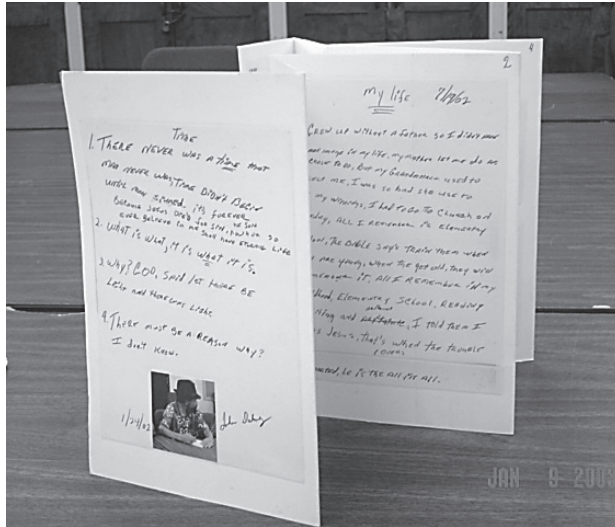 TIME
1. THERE NEVER WAS A time THAT
MAN NEVER WAS, TIME DIDN'T BEGIN
UNTIL MAN SINNED. it's FOREVER
BECAUSE JESUS DIED FOR SIN, so
EVER BELIEVE IN HE SHALL HAVE ETERNAL LIFE
2. WHAT IS WHAT, it is WHAT it is.
3. WHY? GOD, SAID LET THERE BE
Light AND there was Light
4. There must be A REASON WHY?
I don't know.
1/24/02 John
2
4
my life 7/9/02
GREW UP without a father so I didn't
in my life, my mother let me do as
to do, But my Grandmama used to
me, I was so bad she use to
my , I had to Go To Church on
day, ALL I Remember is Elementary
ool, The Bible Says train them when
are young, when the get old, they will
it, All I Remember in my
hood, Elementary School, Reading
ting and , I told them I
Jesus, that's when the trouble
, he is the All in All.
JAN 9 200